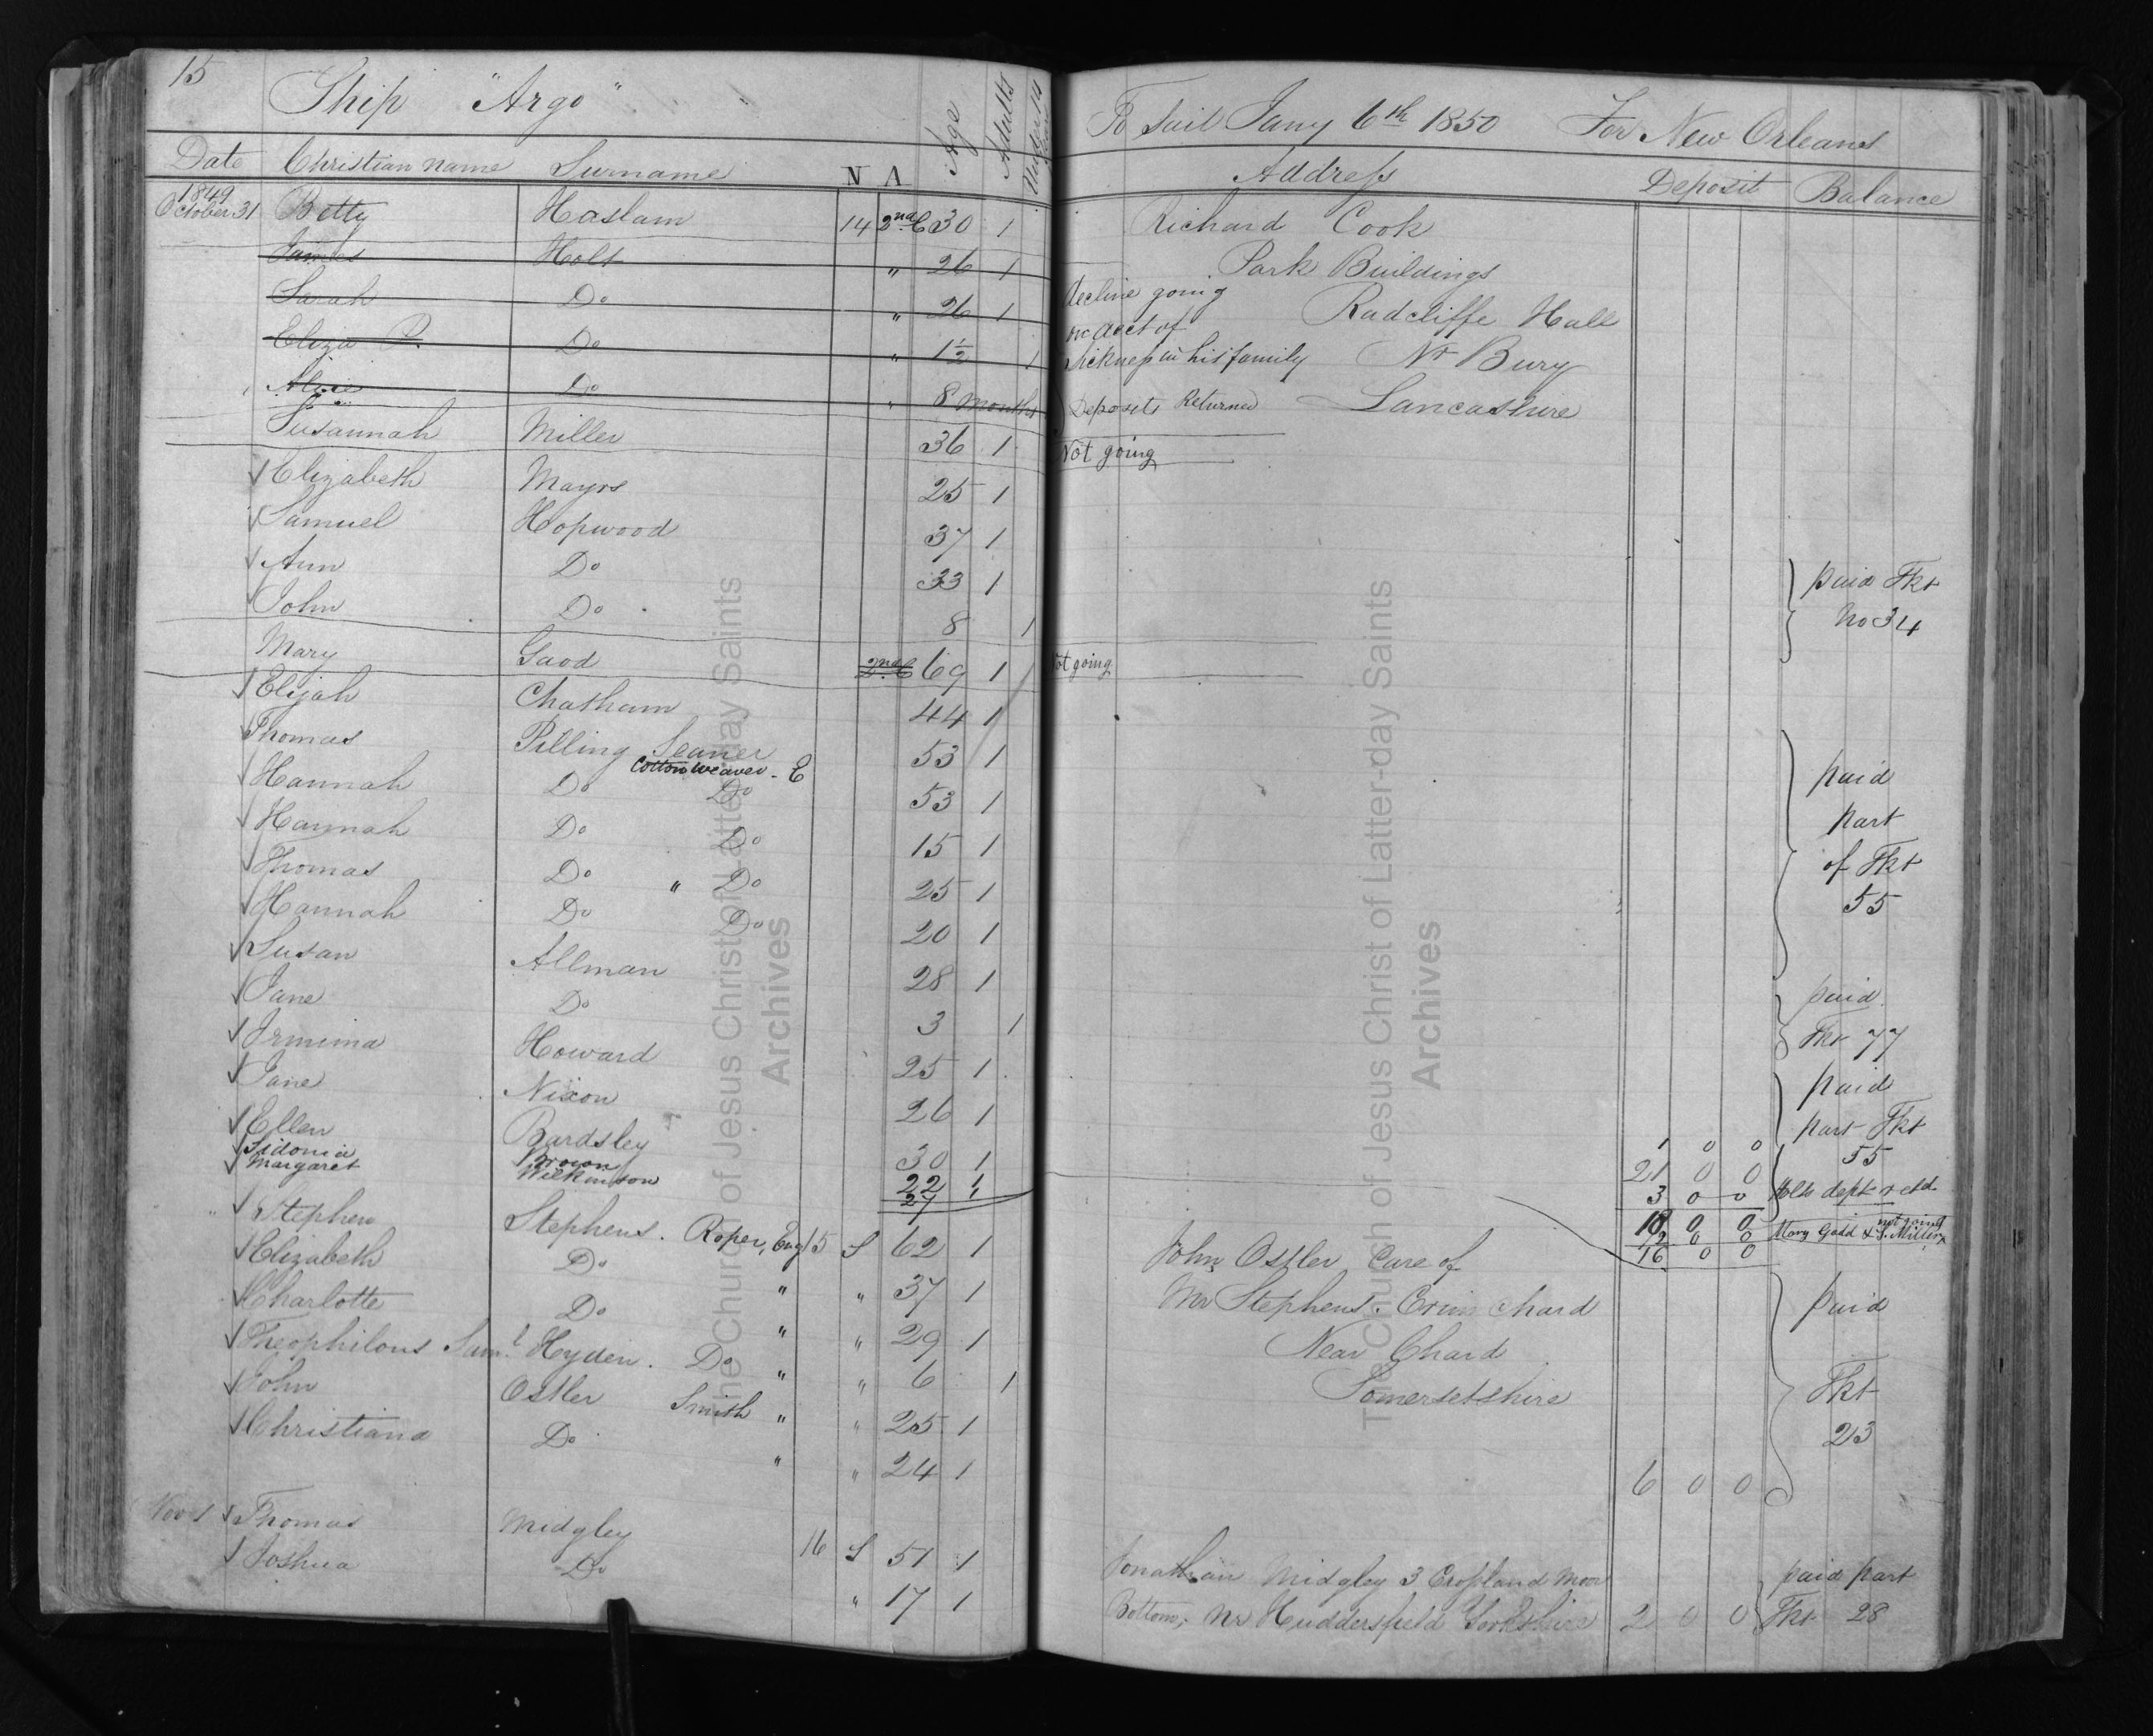 15
Ship "Argo"
Age
Adults
Under 14
To Sail Jany 6th 1850 For New Orleans
Date Christian name Surname N A
Address Deposit Balance
1849
October 31 Betty Haslam 14 2nd C 30 1
Richard Cook
James Holt " 26 1
Park Buildings
Sarah Do " 26 1
decline going
Radcliffe Hall
Eliza P. Do " 1½ 1
on acct of
Sickness in his family Nr Bury
Alice Do " 8 months
Deposits Returned Lancashire
Susannah Miller 36 1
Not going
Elizabeth Mayrs 25 1
Samuel Hopwood 37 1
Ann Do 33 1
paid Tkt
John Do 8 1
No 34
Mary Gaod 2nd C 69 1
Not going
Elijah Chatham 44 1
Thomas Pilling Leaner 53 1
Cotton Weaver - E
paid
Hannah Do Do 53 1
part
Hannah Do Do 15 1
of Tkt
Thomas Do " Do 25 1
55
Hannah Do Do 20 1
Susan Allman 28 1
paid
Jane Do 3 1
Tkt 77
Irmima Howard 25 1
paid
Jane Nixon 26 1
part Tkt
55
Ellen Bardsley 30 1
1 0 0
Sidonia Brown 22 1
21 0 0
Margaret Wilkinson 27 1
3 0 0 Holts dept retd
18 0 0
not going
2 0 0 Mary Gadd & S. Miller
16 0 0
Stephen Stephens. Roper, Eng 15 S 62 1
John Ostler Care of
Elizabeth Do " " 37 1
Mr Stephens. Crim Chard
paid
Charlotte Do " " 29 1
Near Chard
Theophilous Saml Hyden. Do " " 6 1
Somersetshire
Tkt
John Ostler Smith " " 25 1
23
Christiana Do " " 24 1
6 0 0
Nov 1 Thomas Midgley 16 S 51 1
Jonathan Midgley 3 Cropland Moor
paid part
Joshua Do " 17 1
Bottom, Nr Huddersfield Yorkshire 2 0 0 Tkt 28
The Church of Jesus Christ of Latter-day Saints
Archives
The Church of Jesus Christ of Latter-day Saints
Archives